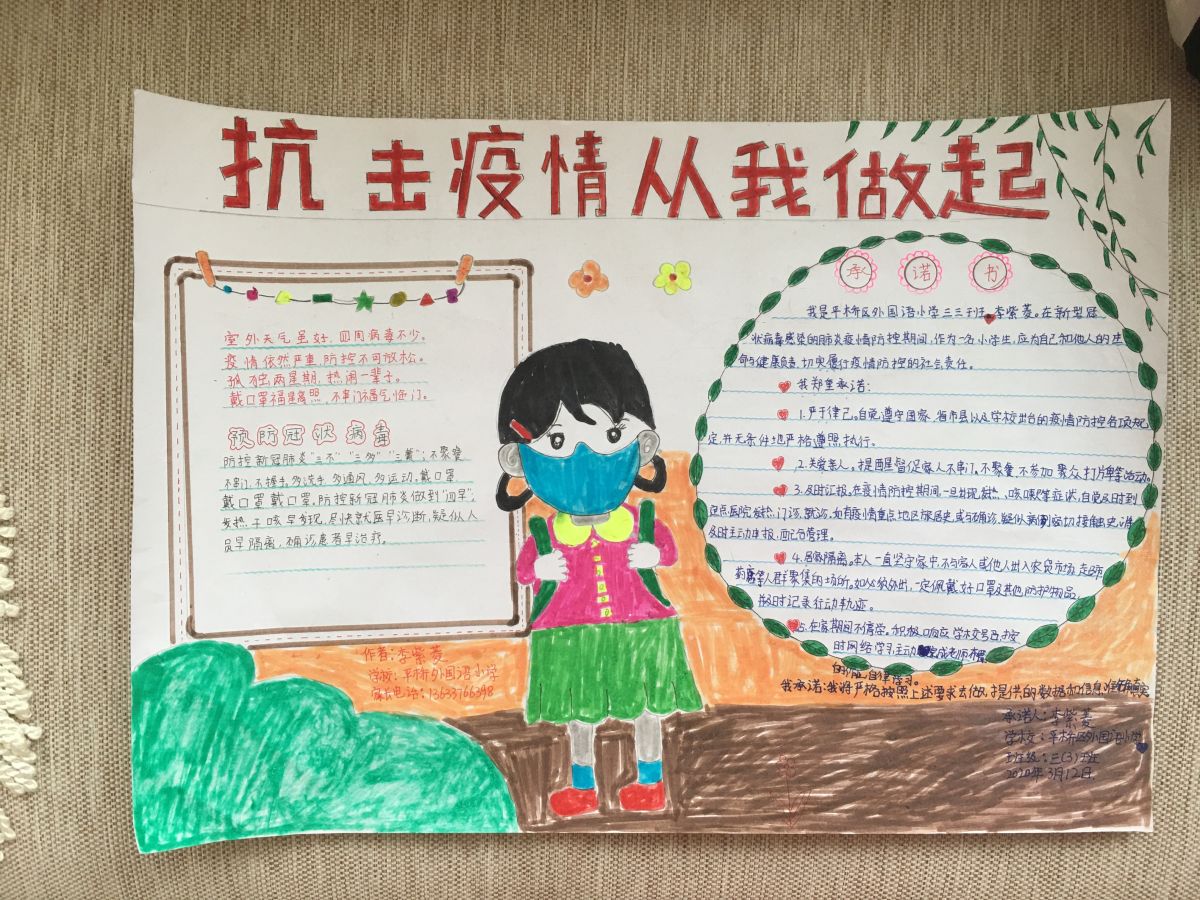 抗击疫情从我做起
室外天气虽好,四周病毒不少。
疫情依然严重,防控不可放松。
孤独两星期,热闹一辈子。
戴口罩福星高照,不串门福气临门。
预防冠状病毒
防控新冠肺炎"三不""三多""三戴":不聚餐
不串门,不握手,多洗手,多通风,多运动,戴口罩
戴口罩戴口罩。防控新冠肺炎做到"四早":
发热干咳早发现,尽快就医早诊断,疑似人
员早隔离,确诊患者早治疗。
作者:李紫菱
学校:平桥外国语小学
家长电话:13633766398
承诺书
我是平桥区外国语小学三三班,李紫菱。在新型冠
状病毒感染的肺炎疫情防控期间,作为一名小学生,应为自己和他人的生
命与健康负责,切实履行疫情防控的社会责任。
我郑重承诺:
1.严于律己。自觉遵守国家、省市县以及学校出台的疫情防控各项规
定,并无条件地严格遵照执行。
2.关爱亲人。提醒督促家人不串门、不聚集、不参加聚众打牌等活动。
3.及时汇报。在疫情防控期间一旦出现发热、咳嗽等症状,自觉及时到
定点医院发热门诊就诊,如有疫情重点地区旅居史,或与确诊、疑似病例密切接触史,
及时主动申报,
4.居家隔离。本人一直坚守家中,不与家人或他人出入农贸市场、超市
药店等人群聚集的场所。如必须外出,一定佩戴好口罩及其他防护物品,
并及时记录行动轨迹。
5.在家期间不信谣,积极响应学校号召,按
时网络学习,主动完成老师布置
的作业,自律学习。
我承诺:我将严格按照上述要求去做,提供的数据和信息准确真实
承诺人:李紫菱
学校:平桥区外国语小学
班级:三(3)班
2020年3月12日